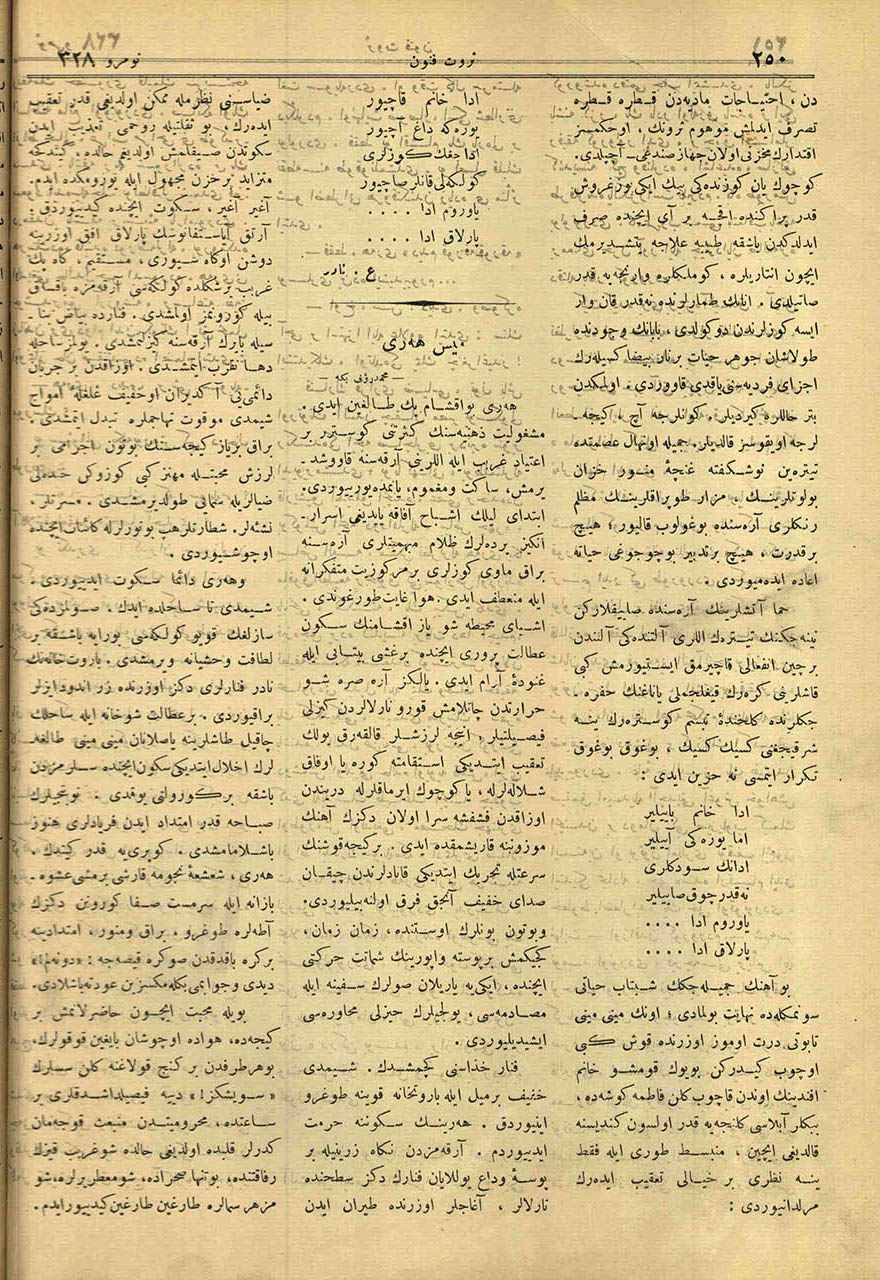 ٢٥٠
ثروت فنون
نومرو ٣٢٨
دن ، احتیاجات مادیه‌دن قطره قطره
تصرف ایدلمش موهوم ثروتك ، اوحكمسز
اقتدارك مخزنی اولان جهاز صندغی ـ آچیلدی .
كوچوك یان كوزنده‌كی بیك ایكی یوز غروش
قدر پراكنده اقچه بر آی ایچنده صرف
ایدلدكدن باشقه طبیبه علاجه یتشدیرمك
ایچون انتاریلره ، كوملكلره وارنجه‌یه قدر
صاتیلدی . انانك طمارلرنده نه‌قدر قان وار
ایسه كوزلرندن دوكولدی ، بابانك وجودنده
طولاشان جوهر حیات برنار بیضا كسیله‌رك
اجزای فردیه‌سنی یاقدی قاووردی . اولمكدن
بتر حاللره كیردیلر . كونلرجه آچ ، كیجه ـ
لرجه اویقوسز قالدیلر . جمیله اونهال عصمتده
تیتره‌ین نوشكفته غنچهٔ منور خزان
بولوتلرینك ، مزار طوپراقلرینك مظلم
رنكلری آره‌سنده بوغولوب قالیور ؛ هیچ
بر قدرت ، هیچ بر تدبیر بوجوجوغی حیاته
اعاده ایده‌میوردی .
حما آتشلرینك آره‌سنده صاییقلاركن
نینه‌جكنك تیتره‌ك اللری آلتنده‌كی آلنندن
بر چین انفعالی قاچیرمق ایستیورمش كبی
قاشلرینی كره‌رك قیغلجملی یاناغنك حفره ـ
جكلرنده كلخندهٔ تبسم كوستره‌رك ینه
شرقیجغنی كسیك كسیك ، بوغوق بوغوق
تكرار ایتمسی نه حزین ایدی :
ادا خانم بابیلیر
اما یوره‌كی آییلیر
ادانك سودكلری
نه‌قدر چوق صاییلیر
یاوروم ادا . . . .
پارلاق ادا . . . .
بو آهنك جمیله‌جكك شبتاب حیاتی
سونمكله‌ده نهایت بولمادی ؛ اونك مینی مینی
تابوتی درت اوموز اوزرنده قوش كبی
اوچوب كیدركن بویوك قومشو خانم
افندینك اوندن قاچوب كلن فاطمه كوشه‌ده ،
ببكلر آیلاسی كلنجه‌یه قدر اولسون كندیسنه
قالدیغی ایچین ، منبسط طوری ایله فقط
ینه نظری بر خیالی تعقیب ایده‌رك
مرلدانیوردی :
ادا خانم قاچیور
یوره‌كه داغ آچیور
اداجغك كوزلری
كولكه‌لی قانلر صاچیور
یاوروم ادا . . . .
پارلاق ادا . . . .
ع . نادر
میس هه‌ری
— محمد رؤف بكه —
هه‌ری بواقشام پك طالغین ایدی .
مشغولیت ذهنیه‌سنك كثرتنی كوستریر بر
اعتیاد غریب ایله اللرینی آرقه‌سنه قاووشد ـ
یرمش ، ساكت ومغموم ، یانمده یورییوردی .
ابتدای لیلك اشباح آفاقه یاپدیغی اسرار ـ
انكیز پرده‌لرك ظلام مبهمیتلری آره‌سنه
براق ماوی كوزلری برمركوزیت متفكرانه
ایله منعطف ایدی . هوا غایت طورغوندی .
اشیای محیطه شو یاز اقشامنك سكون
عطالت پروری ایچنده برغشی بیتابی ایله
غنودهٔ آرام ایدی . یالكز آره صره شو
حرارتدن چاتلامش قورو تارلالردن كیزلی
فیصیلتیلر ، انیجه لرزشلر قالقه‌رق یولك
تعقیب ایتدیكی استقامته كوره یا اوفاق
شلاله‌لرله ، یا كوچوك ایرماقلرله دریندن
اوزاقدن فشفشه سرا اولان دكزك آهنك
موزوننه قاریشمقده ایدی . بركیجه قوشنك
سرعتله تحریك ایتدیكی قانادلرندن چیقان
صدای خفیف آنجق فرق اولنه‌بیلیوردی .
وبوتون بونلرك اوستنده ، زمان زمان ،
كجیكمش برپوسته واپورینك شماتت حركتی
ایچنده ، ایكی‌یه یاریلان صولرك سفینه ایله
مصادمه‌سی ، یولجیلرك حیزلی محاوره‌سی
ایشیدیلیوردی .
فنار خذاسنی كچمشدك . شیمدی
خفیف برمیل ایله باروتخانه قوینه طوغرو
اینیوردق . هه‌رینك سكوننه حرمت
ایدییوردم . آرقه‌مزدن نكاه زرینیله بر
بوسهٔ وداع یوللایان فنارك دكز سطحنده
تارلالر ، آغاجلر اوزرنده طیران ایدن
ضیاسنی نظرمله ممكن اولدیغی قدر تعقیب
ایده‌رك ، بو ثقلتیله روحمی تعذیب ایدن
سكوتدن صیقلمش اولدیغم حالده ، كیتدكجه
متزاید برحزن مجهول ایله یورومكده ایدم .
آغیر آغیر ، سكوت ایچنده كیدییوردق .
آرتق آیاستفانوسك پارلاق افق اوزرینه
دوشن اوكاه سیوری ، مستقیم ، كاه پك
غریب برشكلده كولكه‌سی آرقه‌مزه باقساق
بیله كورونمز اولمشدی . فنارده بیاض بنا ـ
سیله پارك آرقه‌سنه كزلنمشدی . یولمز ساحله
دها تقرب ایتمشدی . اوزاقدن بر جریان
دائمی‌یی آكدیران اوخفیف غلغلهٔ امواج
شیمدی موقوت تهاجملره تبدل ایتمشدی .
براق برباز كیجه‌سنك بوتون اجرامی بر
لرزش محبتله مهتز كبی كوزوكن خنده‌لی
ضیالریله سمائی طولدیرمشدی . مسرتلر ،
نشئه‌لر . شطارتلر هپ بونورلرله كائنات ایچنده
اوچوشیوردی .
وهه‌ری دائما سكوت ایدییوردی .
شیمدی تا ساحلده ایدك . صولمزده‌كی
سازلغك قویو كولكه‌سی بورایه باشقه بر
لطافت وحشیانه ویرمشدی . باروت خانه‌نك
نادر فنارلری دكز اوزرنده زر اندود ایزلر
براقیوردی . برعطالت شوخانه ایله ساحلك
چاقیل طاشلرینه یاصلانان مینی مینی طالغه ـ
لرك اخلال ایتدیكی سكون ایچنده سسلرمزدن
باشقه بر كورولتی یوقدی .
صباحه قدر امتداد ایدن فریادلری هنوز
باشلامامشدی . كوپری‌یه قدر كیتدك .
هه‌ری ، شعشعهٔ نجومه قارشی برمشی عشوه ـ
بازانه ایله سرمست صفا كورونن دكزك
آطه‌لره طوغرو ، براق ومنور ، امتدادینه
بركره باقدقدن صوكره قیصه‌جه : « دونه‌لم ! »
دیدی وجوابمی بكله‌مكسزین عودته باشلادی .
بویله محبت ایچون حاضرلانمش بر
كیجه‌ده ، هواده اوچوشان بایغین قوقولرك ،
بوهر طرفدن بر كنج قولاغنه كلن سسلرك
« سویشكز ! » دییه فیصیلداشدقلری بر
ساعتده ، محرومیتدن منبعث قوجه‌مان
كدرلر قلبده اولدیغی حالده شو غریب قیزك
رفاقتنده ، بوتنها صحراده ، شو معطر یرلره ، شو
مزهر سمالره طارغین طارغین كیدییور ایدم .